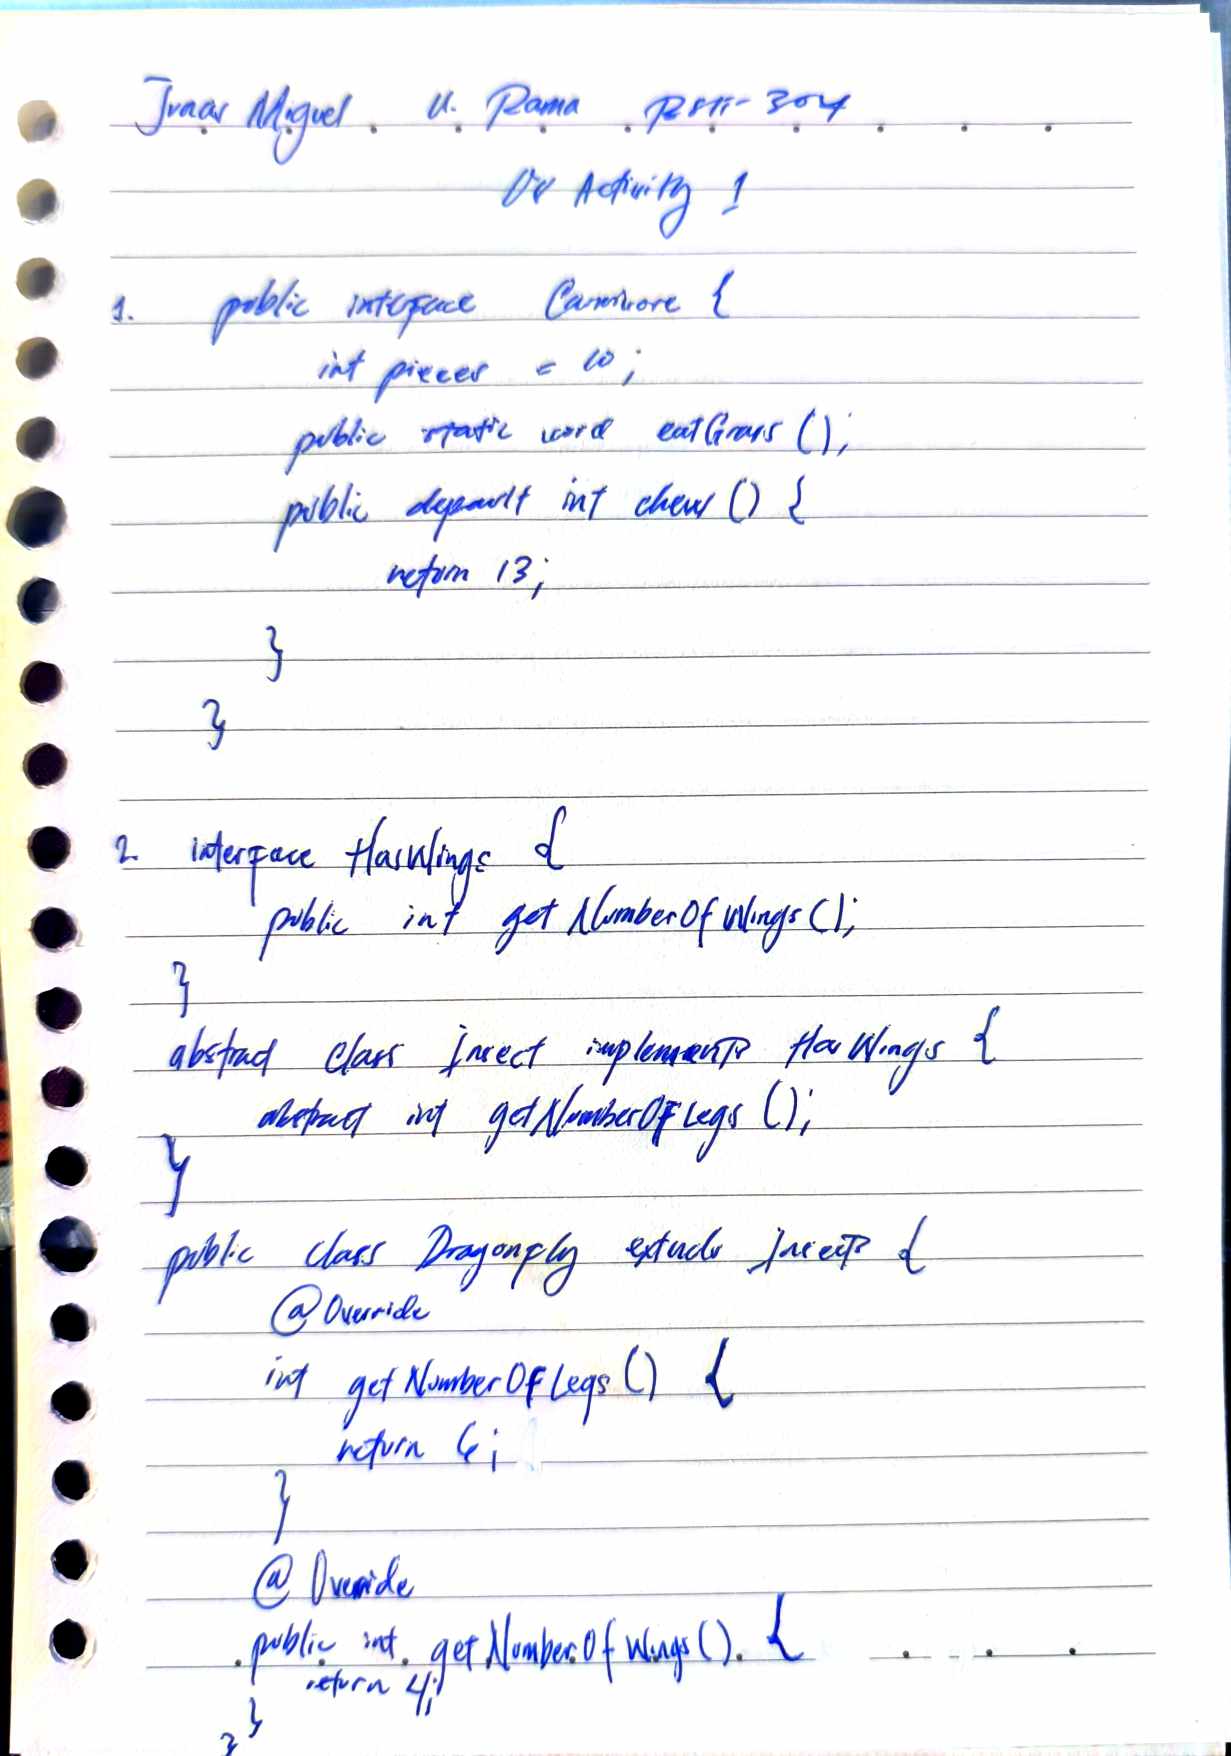 Miguel U. Rama
Activity 1
1. public interface Carnivore {
int pieces = 10;
public static void eatGrass();
public default int chew() {
return 13;
}
}
2. interface HasWings {
public int getNumberOfWings();
}
abstract class Insect implements HasWings {
abstract int getNumberOfLegs();
}
public class Dragonfly extends Insects {
@Override
int getNumberOfLegs() {
return 6;
}
@Override
public int getNumberOfWings() {
return 4;
}
}